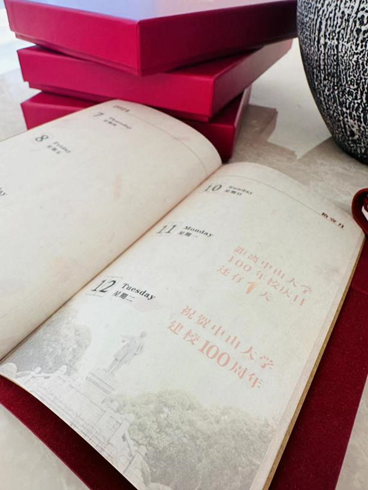 7 Thursday
星期四
8 Friday
星期五
10 Sunday
星期日
11 Monday
星期一
距离中山大学
100年校庆日
还有1天
12 Tuesday
星期二
祝贺中山大学
建校100周年